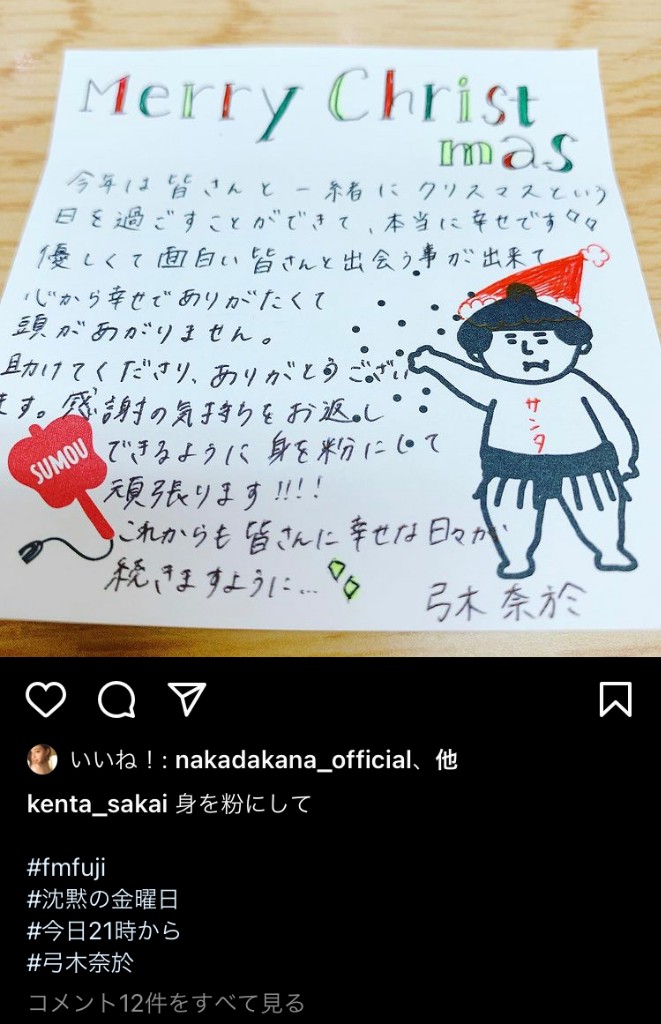 Merry Christ
mas
今年は皆さんと一緒にクリスマスという
日を過ごすことができて、本当に幸せです
優しくて面白い皆さんと出会う事が出来て
心から幸せでありがたくて
頭があがりません。
助けてくださり、ありがとうござい
ます。感謝の気持ちをお返し
できるように身を粉にして
頑張ります!!!!
これからも皆さんに幸せな日々が
続きますように...
弓木奈於
サンタ
SUMOU
いいね！: nakadakana_official、他
kenta_sakai 身を粉にして
#fmfuji
#沈黙の金曜日
#今日21時から
#弓木奈於
コメント12件をすべて見る